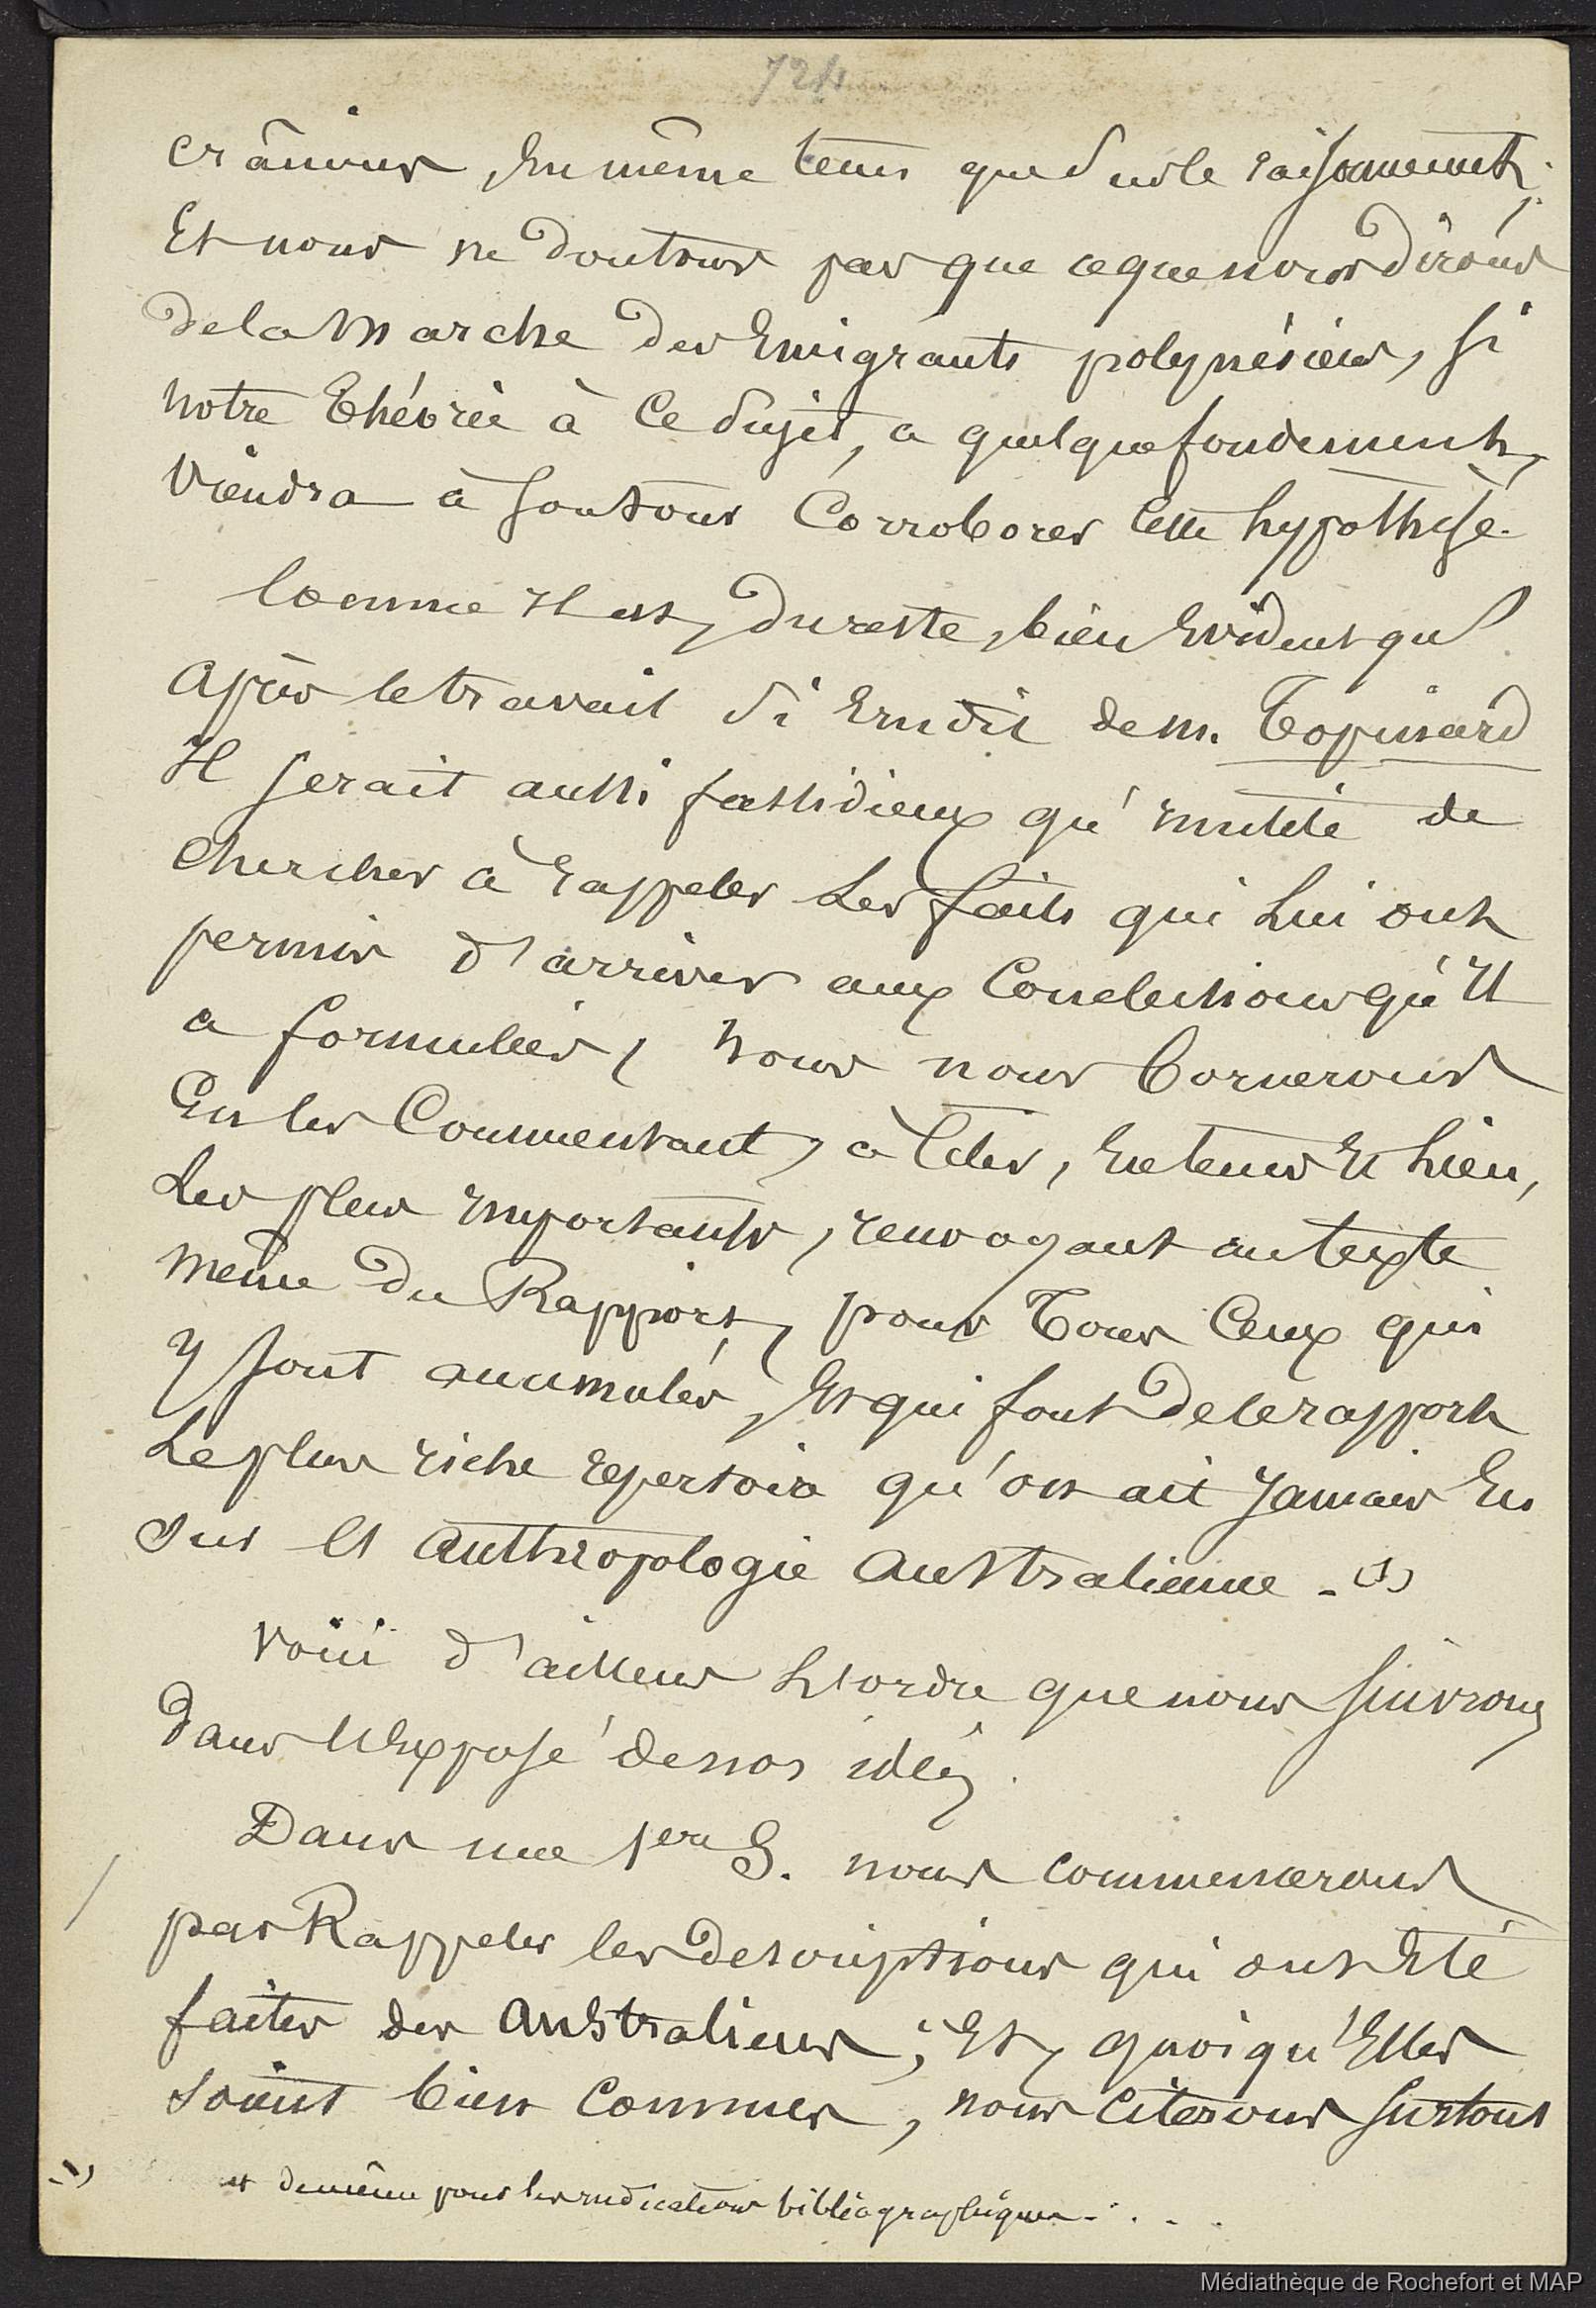 724
crâniens, En même tems que sur le raisonnement;
Et nous ne doutons pas que ce que nous dirons
de la Marche des Emigrants polynésiens, si
notre théorie à ce sujet, a quelque fondement,
viendra à son tour Corroborer cette hypothèse.
Comme Il est, du reste, bien Evident qu'
après le travail si Erudit de M. Topinard
Il serait aussi fastidieux qu'Inutile de
Chercher à rappeler Les faits qui Lui ont
permis d'arriver aux Conclusions qu'Il
a formulées, nous nous bornerons
En les Commentant, à Citer, En tems Et Lieu,
Les plus Importants, renvoyant au texte
même du Rapport, pour tous Ceux qui
y sont accumulés, Et qui font de ce rapport
Le plus riche repertoire qu'on ait Jamais Eu
sur L'anthropologie australienne. (1)
Voici d'ailleurs L'ordre que nous suivrons
dans L'Exposé de nos idées.
Dans une 1ere S. nous commencerons
par Rappeler les descriptions qui ont Eté
faites des australiens; Et, quoiqu'Elles
soient bien connues, nous citerons surtout
(1) et de même pour les Indications bibliographiques. . . .
Médiathèque de Rochefort et MAP